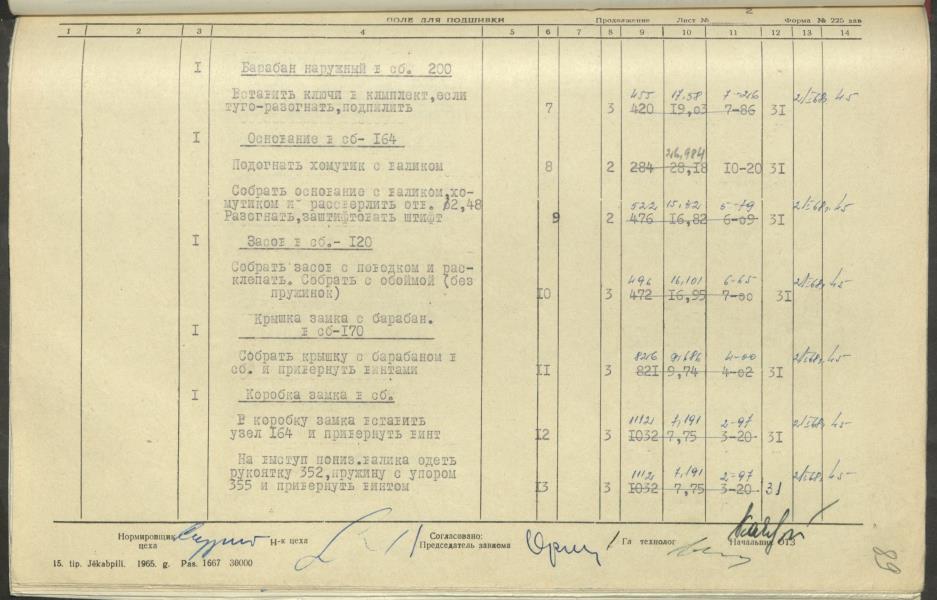 2
ПОЛЕ ДЛЯ ПОДШИВКИ Продолжение Лист № Форма № 225 зав
1 2 3 4 5 6 7 8 9 10 11 12 13 14
I Барабан наружный в сб. 200
455 17,58 7-
Вставить ключи в кмплект,если
туго-разогнать,подпилить 7 3 420 19,03 7-86 3I 45
I Основание в сб- I64
26,984
Подогнать хомутик с валиком 8 2 284 28,I8 I0-20 3I
Собрать основание с валиком,хо-
мутиком и рассверлить отв. 2,48 522
Разогнать,заштифтовать штифт 9 2 476 I6,82 6-09 3I 45
I Засов в сб.- I20
Собрать засов с поводком и рас- 496 16,101 6-65
клепать. Собрать с обоймой (без
пружинок) I0 3 472 I6,95 7-00 3I 45
Крышка замка с барабан.
I в сб-I70
Собрать крышку с барабаном в 826 9,686 4-00
сб. и привернуть винтами II 3 82I 9,74 4-02 3I 45
I Коробка замка в сб.
В коробку замка вставить 1112 7,191 2-97
узел I64 и привернуть винт I2 3 I032 7,75 3-20 3I 45
На выступ пониз.валика одеть
рукоятку 352,пружину с упором 1112 7,191 2-97
355 и привернуть винтом I3 3 I032 7,75 3-20 31 45
Нормировщик цеха Н-к цеха Согласовано: Председатель завкома Гл технолог Начальник ОТЗ
15. tip. Jēkabpilī. 1965. g. Pas. 1667 30000
89